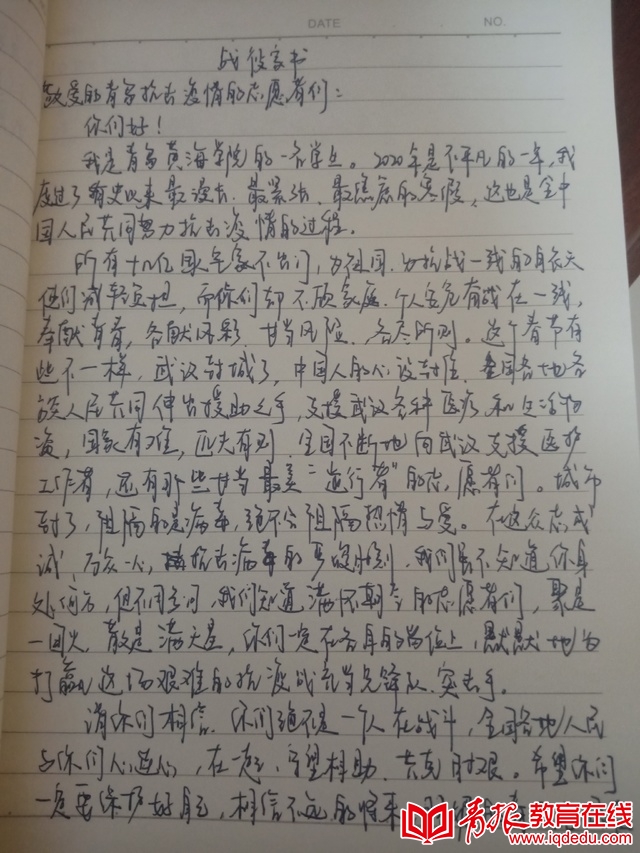 DATE NO.
战役家书
敬爱的青岛抗击疫情的志愿者们：
你们好！
我是青岛黄海学院的一名学生。2020年是不平凡的一年，我
度过了有史以来最漫长、最紧张、最焦虑的寒假，这也是全中
国人民共同努力抗击疫情的过程。
所有十几亿国人宅家不出门，为祖国、为抗战一线的白衣天
使们减轻负担，而你们却不顾家庭、个人安危奋战在一线，
奉献青春，各献风彩，甘当风险，各尽所则。这个春节有
些不一样，武汉封城了，中国人的心没封住，全国各地各
族人民共同伸出援助之手，支援武汉各种医疗和生活物
资，国家有难，匹夫有则，全国不断地向武汉支援医护
工作者，还有那些甘当最美“逆行者”的志愿者们。城市
封了，阻隔的是病毒，绝不会阻隔热情与爱。在这众志成
诚，万众一心，抗击病毒的关键时刻，我们虽不知道你身
处何方，但不用言问，我们知道满怀朝气的志愿者们，聚是
一团火，散是满天星，你们一定在各自的岗位上，默默地为
打赢这场艰难的抗疫战充当先锋队、突击手。
请你们相信，你们绝不是一个人在战斗，全国各地人民
与你们心连心，在一起，守望相助，共克时艰。希望你们
一定要保护好自己，相信不远的将来
青报教育在线
www.iqdedu.com